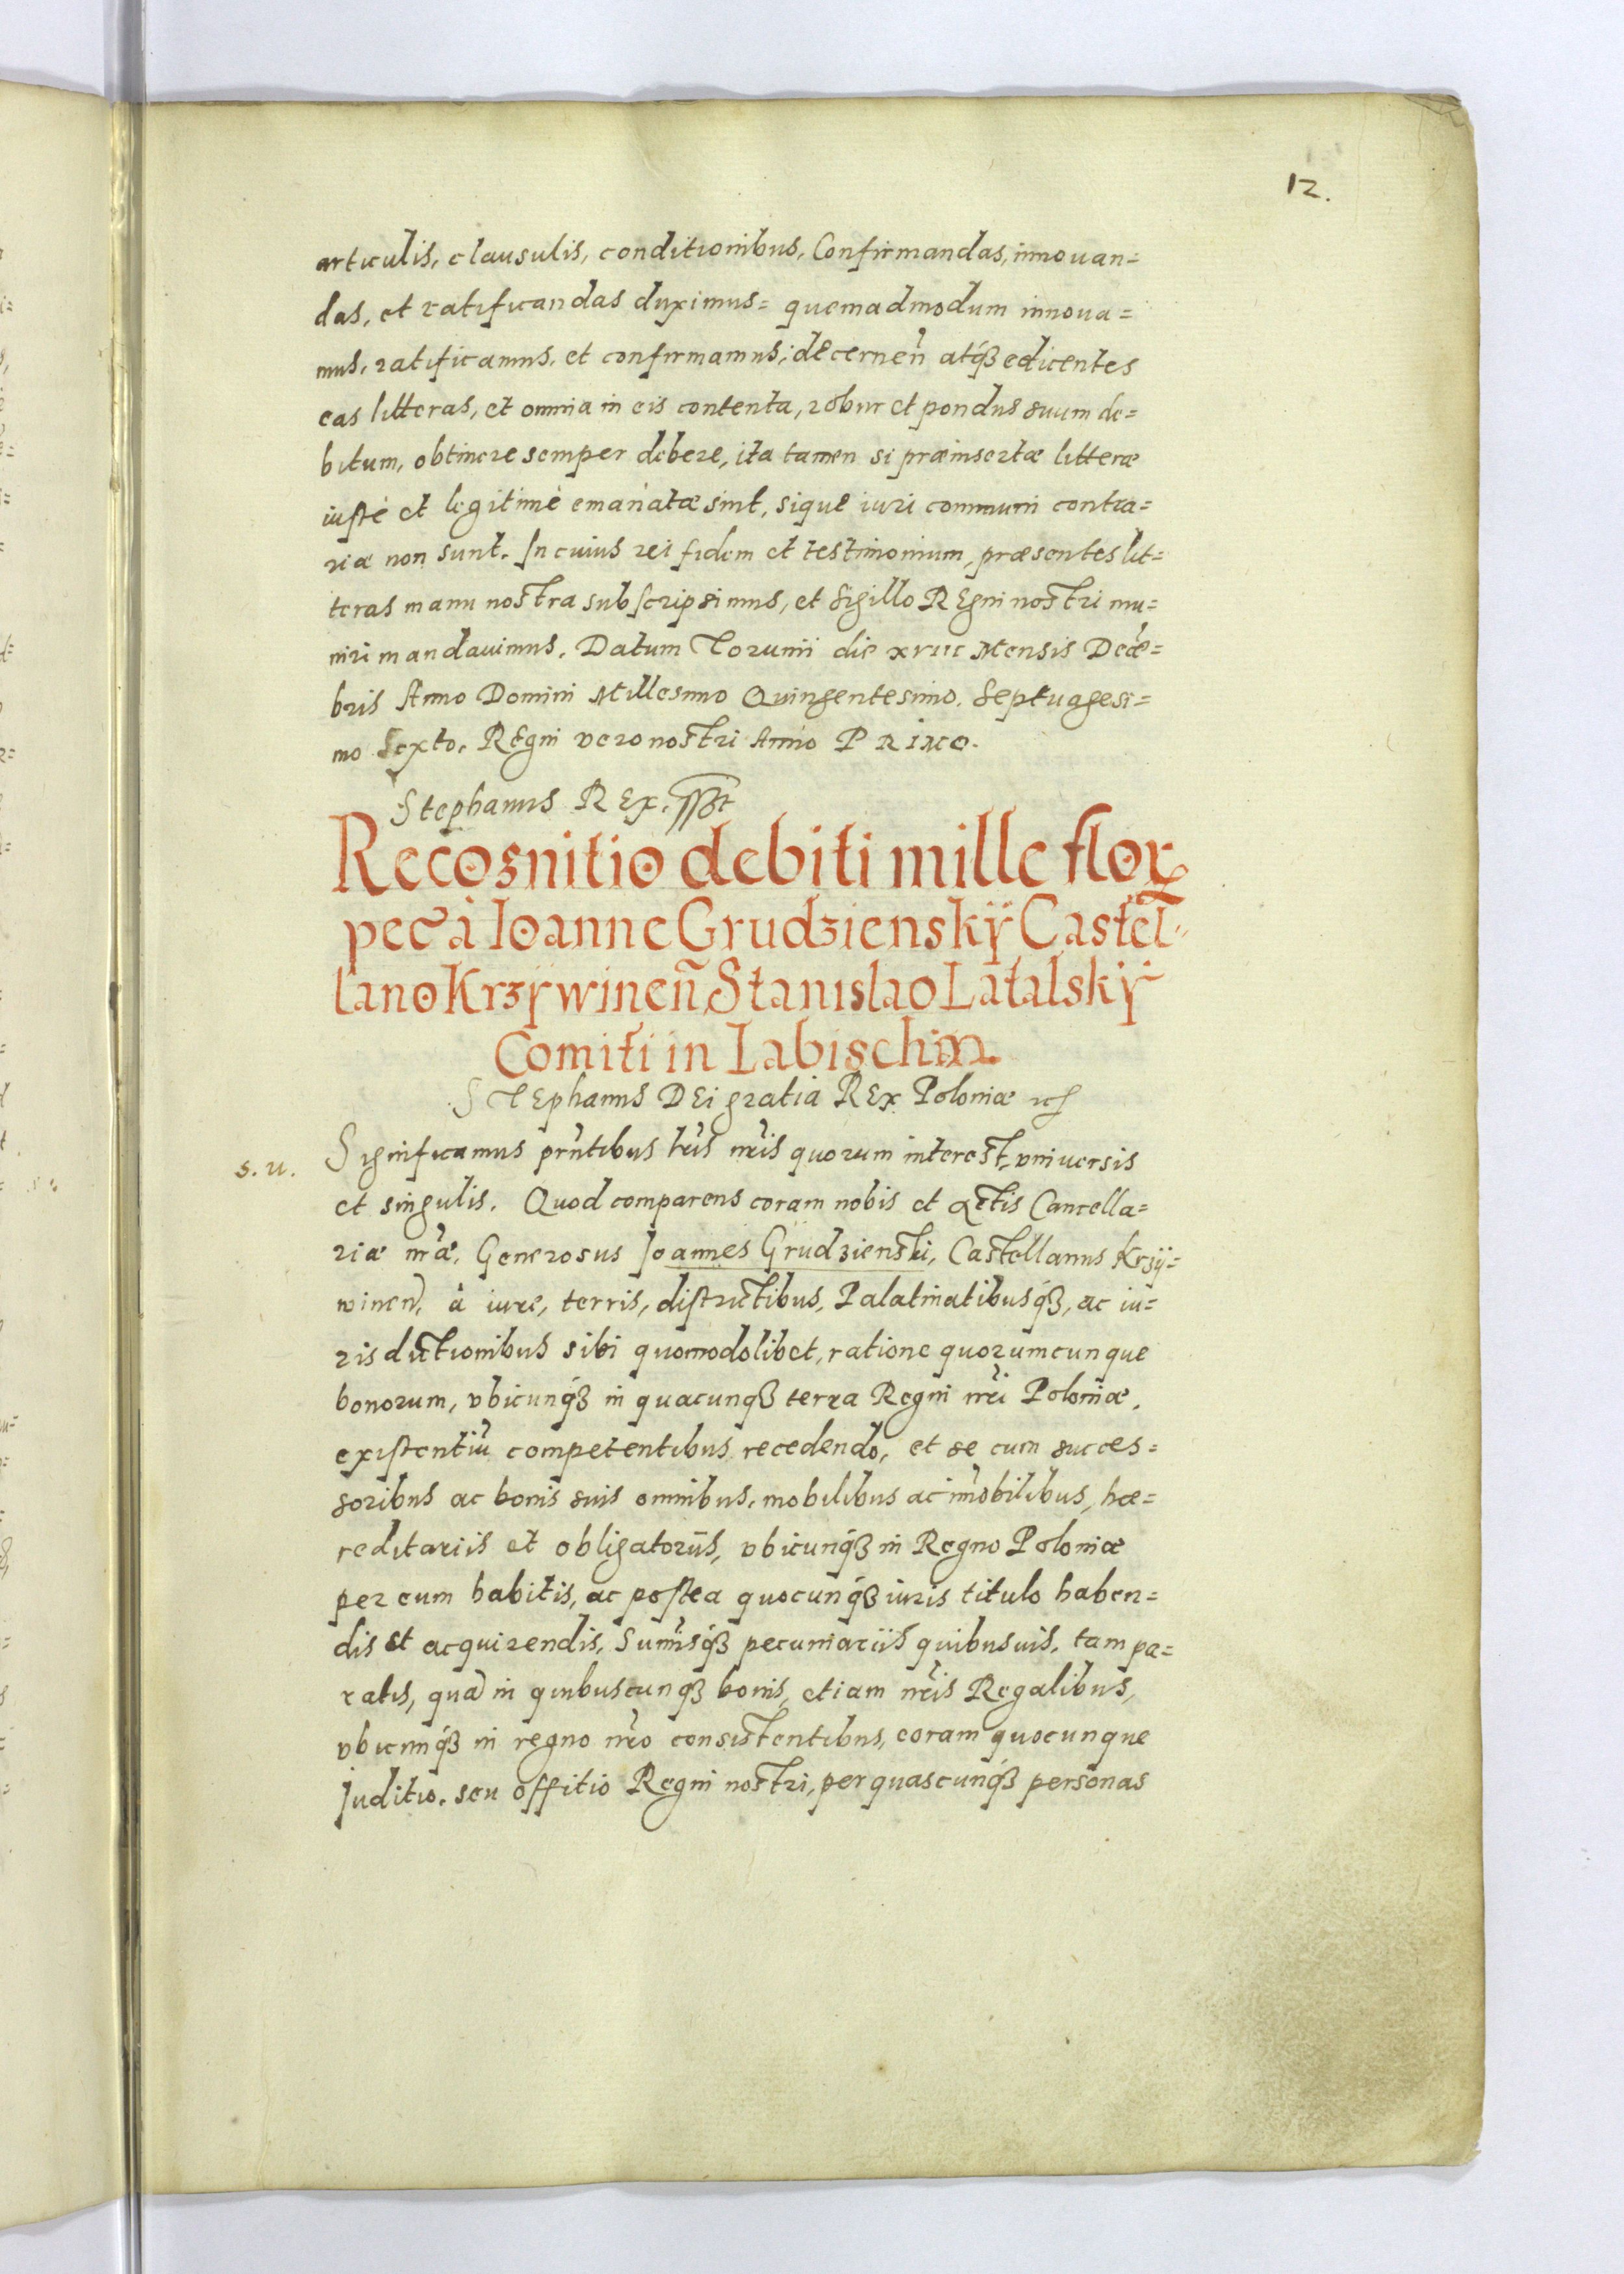 12.
articulis, clausulis, conditionibus, Confirmandas, innouan=
das, et ratificandas duximus= quemadmodum innoua=
mus, ratificamus, et confirmamus; decernen̄ atq́ꝫ edicentes
eas litteras, et omnia in eis contenta, robur et pondus suum de=
bitum, obtinere semper debere, ita tamen si præinsertæ litteræ
iustè et legitimè emanatæ sint, sique iuri communi contra=
riæ non sunt. In cuius rei fidem et testimonium, præsentes lit=
teras manu nostra subscripsimus, et Sigillo REgni nostri mu=
niri mandauimus. Datum Torunii die xviii Mensis Decē=
bris Anno Domini Millesimo Quingentesimo. Septuagesi=
mo Sexto. REgni vero nostri Anno PRIMO.
Stephanus REx. sspt
Recognitio debiti mille flor
pec̃ à Ioanne Grudzienskÿ Castel̃=
lano Krzÿwineñ Stanislao Latalskÿ
Comiti in Labischin.
STEphanus DEi gratia REx Poloniæ
s. u. Significamus pn̄tibus lr̄is nr̄is quorum interest, vniuersis
et singulis. Quod comparens coram nobis et Actis Cancella=
riæ nr̄æ, Generosus Joannes Grudzienski, Castellanus Krzÿ=
winen̄, à iure, terris, districtibus, Palatinatibusq́ꝫ, ac iu=
risdictionibus sibi quomodolibet, ratione quorumcunque
bonorum, vbicunq́ꝫ in quacunqꝫ terra Regni nr̄i Poloniæ,
existentiū competentibus recedendo, et se cum succes=
soribus ac bonis suis omnibus, mobilibus ac im̄obilibus, hæ=
reditariis et obligatoriis, vbicunq́ꝫ in Regno Poloniæ
per eum habitis, ac postea quocunq́ꝫ iuris titulo haben=
dis et acquirendis, Sum̄isq́ꝫ pecuniariis quibusuis, tam pa=
ratis, quā in quibuscunqꝫ bonis, etiam nr̄is Regalibus,
vbicunq́ꝫ in regno nr̄o consistentibus, coram quocunque
Juditio, seu offitio Regni nostri, per quascunq́ꝫ personas